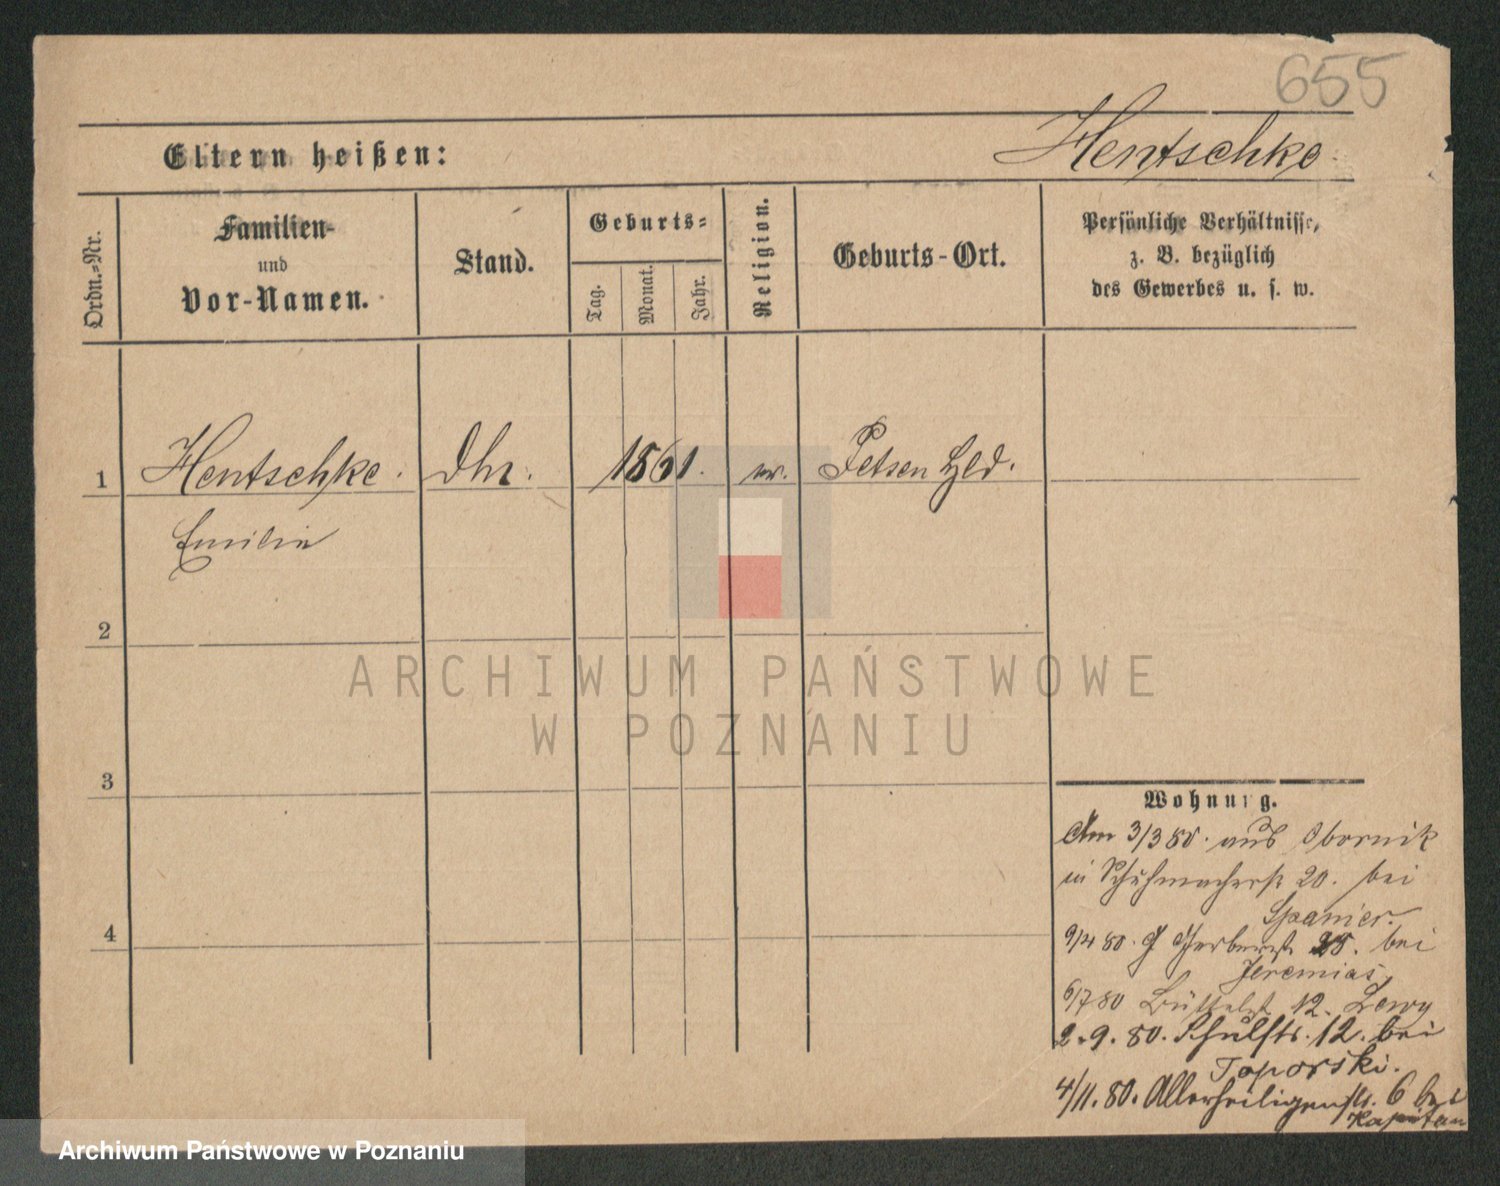 655
Eltern heißen:
Hentschke
Ordn.-Nr.
Familien-
und
Vor-Namen.
Stand.
Geburts-
Tag.
Monat.
Jahr.
Religion.
Geburts-Ort.
Persönliche Verhältnisse,
z. B. bezüglich
des Gewerbes u. s. w.
1
Hentschke. 1861. Hld.
Emilie
2
3
4
Wohnung.
Am 3/3 80. aus Obornik
in Schuhmacherst 20. bei
Spanier.
9/4 80. Gerberst bei
Jeremias,
6/7 80 Büttelst 12. Lewy
2.9.80. Schulstr. 12. bei
Toporski.
4/11.80. Allerheiligenstr. 6 bei
Kapitan
ARCHIWUM PAŃSTWOWE
W POZNANIU
Archiwum Państwowe w Poznaniu